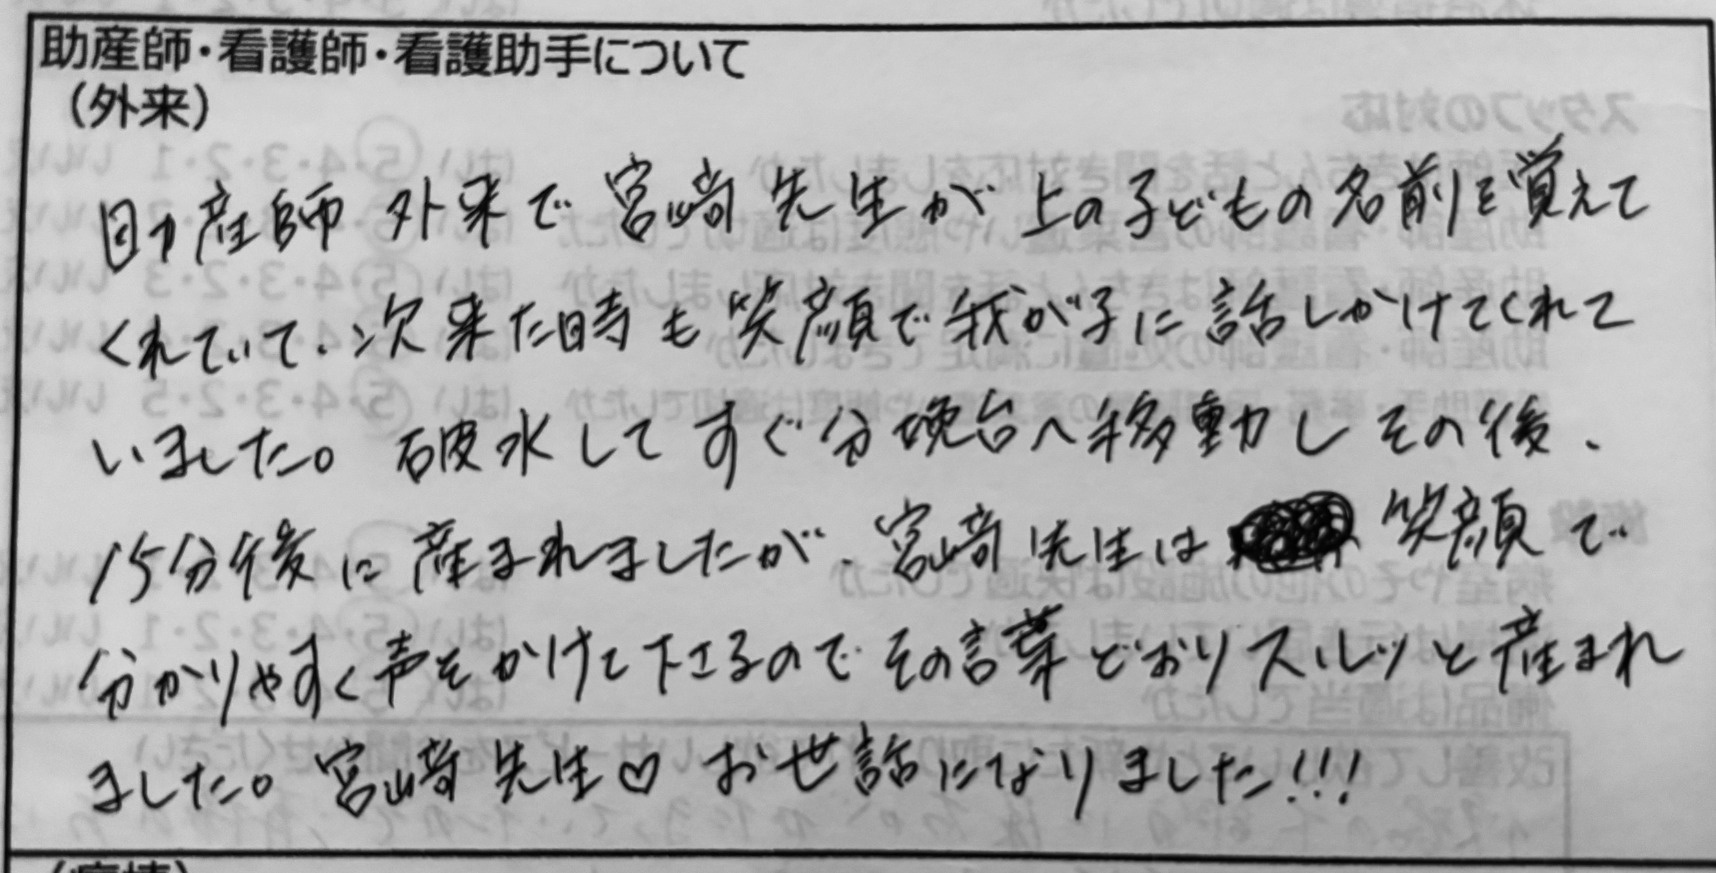 助産師・看護師・看護助手について
（外来）
助産師外来で宮崎先生が上の子どもの名前を覚えて
くれていて、次来た時も笑顔で我が子に話しかけてくれて
いました。破水してすぐ分娩台へ移動しその後、
15分後に産まれましたが、宮崎先生は笑顔で
分かりやすく声をかけて下さるのでその言葉どおりスルッと産まれ
ました。宮崎先生♡お世話になりました!!!